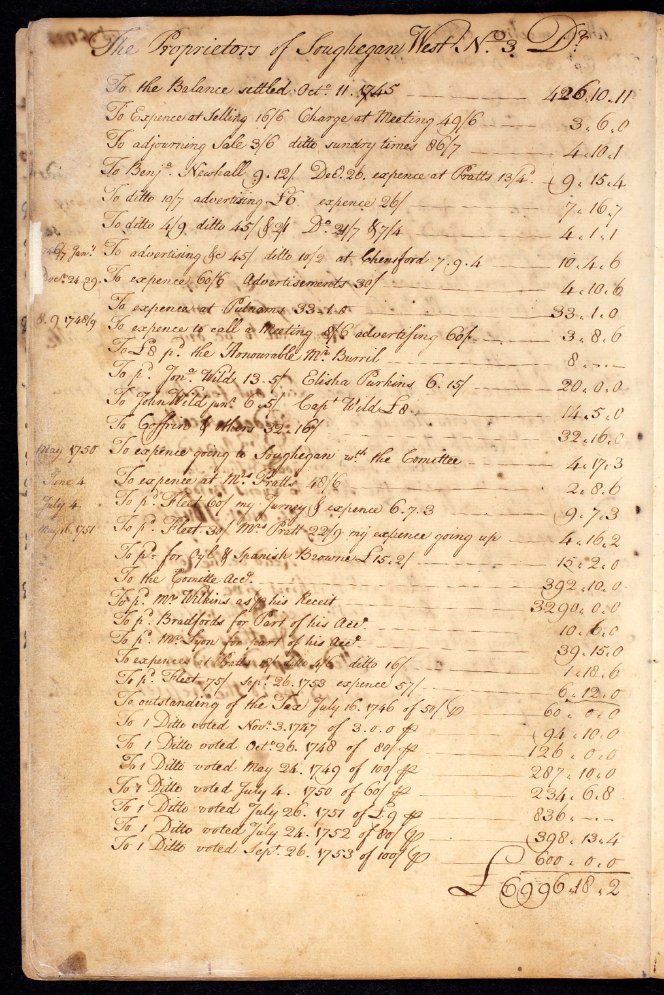 The Proprietors of Soughegan West No. 3 Dr.
To the Balance settled Octo. 11. 1745 426.10.11
To Expence at Selling 16/6 Charge at Meeting 49/6 3.6.0
To adjourning Sale 3/6 ditto sundry times 86/7 4.10.1
To Benja. Newhall 9.12/. Dec. 26. expence at Pratts 13/4d 9.15.4
To ditto 10/7 advertising £6 expence 26/ 7.16.7
To ditto 4/9 ditto 45/ & 2/ Do. 21/7 & 7/4 4.1.1
Jany. To advertising &c 45/ ditto 10/2 at Chensford 7.9.4 10.4.6
Decr. 24.29. To expence 60/6 Advertisements 30/ 4.10.6
To expence at Putnams 33.1.0 33.1.0
8.9 1748/9 To expence to call a Meeting 8/6 advertising 60/ 3.8.6
To £8 pd. the Honourable Mr. Burril 8.--.--
To pd. Jna. Wild 13.5/ Elisha Purkins 6.15/ 20.0.0
To John Wild junr. 6.5/ Capt. Wild £8 14.5.0
To Goffrin & others 32.16/ 32.16.0
May 1750 To expence going to Soughegan wth. the Comittee 4.17.3
June 4 To expence at Mrs Pratts 48/6 2.8.6
July 4. To pd. Fleet 60/ my Jurney & expence 6.7.3 9.7.3
May 16. 1751 To pd. Fleet 30/ Mrs Pratt 22/9 my expence going up 4.16.2
To pd. for Oyl & Spanish Browne £15.2/ 15.2.0
To the Comitte Acct. 392.10.0
To pd. Mr Wilkins as p his Receit 3290.0.0
To pd. Bradfords for Part of his Acct. 10.6.0
To pd. Mr. Lyon for part of his Acct. 39.15.0
To expences at ditto 4/6 ditto 16/ 1.18.6
To pd. Fleet 75/ Sept. 26. 1753 expence 57/ 6.12.0
To outstanding of the Tax July 16. 1746 of 50/ p 60.0.0
To 1 Ditto voted Novr. 3. 1747 of 3.0.0 p 94.10.0
To 1 Ditto voted Octo. 26. 1748 of 80/ p 126.0.0
To 1 Ditto voted May 24. 1749 of 100/ p 287.10.0
To 1 Ditto voted July 4. 1750 of 60/ p 234.6.8
To 1 Ditto voted July 26. 1751 of £9 p 836.--.--
To 1 Ditto voted July 24. 1752 of 80/ p 398.13.4
To 1 Ditto voted Sept. 26. 1753 of 100/ p 600.0.0
£6996.18.2